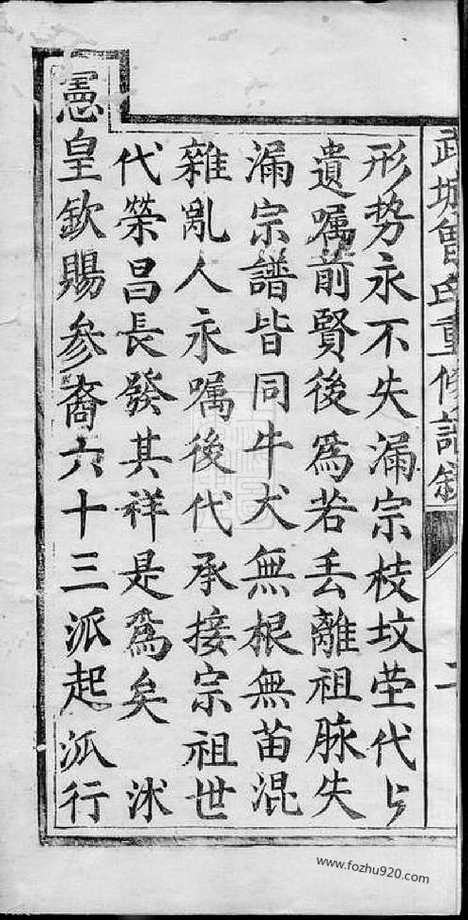 武城曾氏重修譜敘
二
形势永不失漏宗枝坟茔代ㄣ
遺嘱前賢後爲若丢離祖脉失
漏宗譜皆同牛犬無根無苗混
雜亂人永嘱後代承接宗祖世
代榮昌長發其祥是爲矣 沭
憲皇欽賜参裔六十三派起派行
www.fozhu920.com